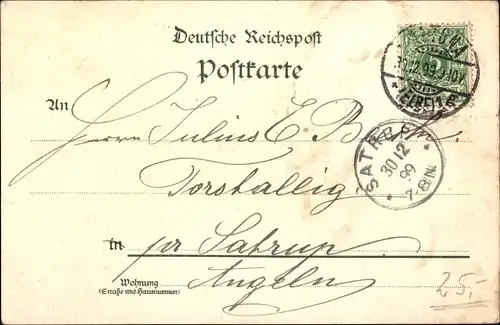 Deutsche Reichspost
Postkarte
30.12.99
An
Herrn Julius C B
SATRUP
30 12
99
7-8 N.
Torstallig
in pr Satrup
Angeln
Wohnung
(Straße und Hausnummer)
25,-